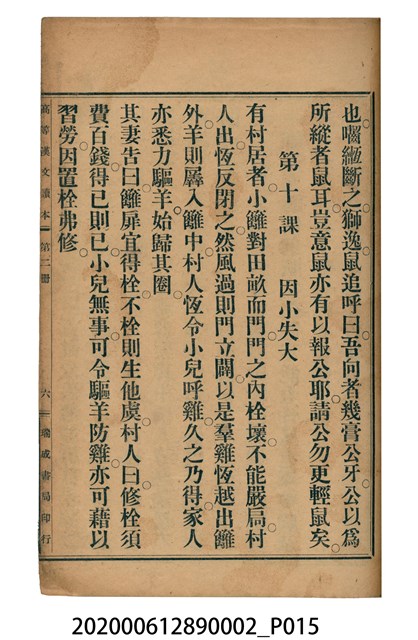 也嚙縆斷之獅逸鼠追呼曰吾向者幾膏公牙公以爲
所縱者鼠耳豈意鼠亦有以報公耶請公勿更輕鼠矣
第十課　因小失大
有村居者小籬對田畝而門門之內栓壞不能嚴扃村
人出恆反閉之然風過則門立闢以是羣雞恆越出籬
外羊則羼入籬中村人恆令小兒呼雞久之乃得家人
亦悉力驅羊始歸其圈
其妻告曰籬扉宜得栓不栓則生他虞村人曰修栓須
費百錢得已則已小兒無事可令驅羊防雞亦可藉以
習勞因置栓弗修
高等漢文讀本　第二冊　六　瑞成書局印行
202000612890002_P015